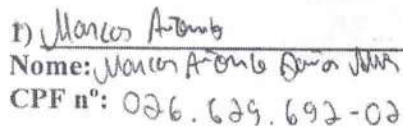 1) Marcos Antonio
Nome: Marcos Antonio
CPF nº: 026.629.692-02